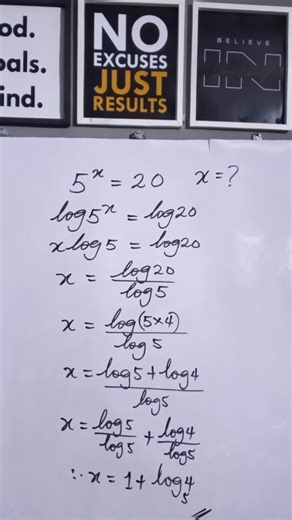 od.
oals.
ind.
NO
EXCUSES
JUST
RESULTS
BELIEVE
IN
5^x = 20   x = ?
log5^x = log20
xlog5 = log20
x = log20/log5
x = log(5×4)/log5
x = (log5 + log4)/log5
x = log5/log5 + log4/log5
∴ x = 1 + log₅4